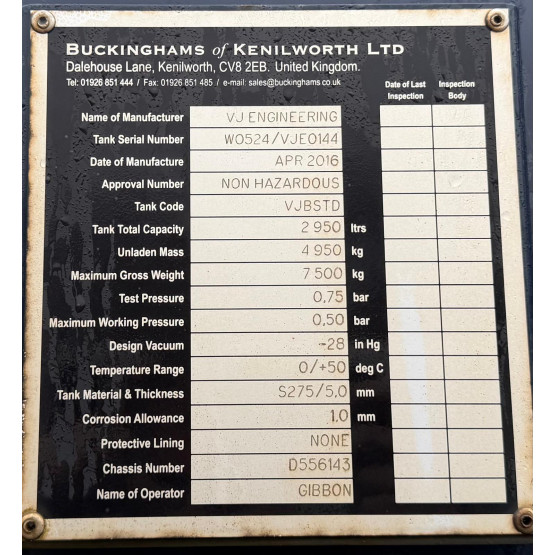 BUCKINGHAMS of KENILWORTH LTD
Dalehouse Lane, Kenilworth, CV8 2EB. United Kingdom.
Tel: 01926 851 444 / Fax: 01926 851 485 / e-mail: sales@buckinghams.co.uk
Date of Last Inspection Inspection Body
Name of Manufacturer VJ ENGINEERING
Tank Serial Number W0524/VJE0144
Date of Manufacture APR 2016
Approval Number NON HAZARDOUS
Tank Code VJBSTD
Tank Total Capacity 2 950 ltrs
Unladen Mass 4 950 kg
Maximum Gross Weight 7 500 kg
Test Pressure 0,75 bar
Maximum Working Pressure 0,50 bar
Design Vacuum -28 in Hg
Temperature Range 0/+50 deg C
Tank Material & Thickness S275/5,0 mm
Corrosion Allowance 1.0 mm
Protective Lining NONE
Chassis Number D556143
Name of Operator GIBBON